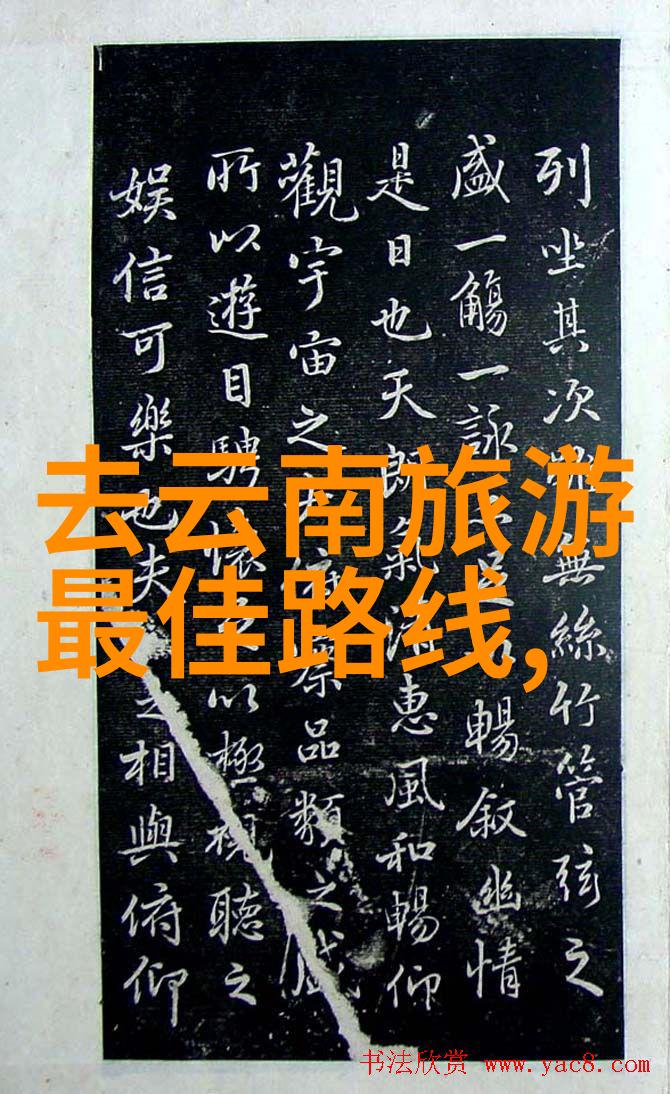 列坐其次雖無絲竹管弦之
盛一觴一詠足暢叙幽情
是日也天朗氣清惠風和暢仰
觀宇宙之大俯察品類之盛
所以遊目騁懷足以極視聽之
娛信可樂也夫之相與俯仰
去云南旅游
最佳路线,
书法欣赏 www.yac8.com